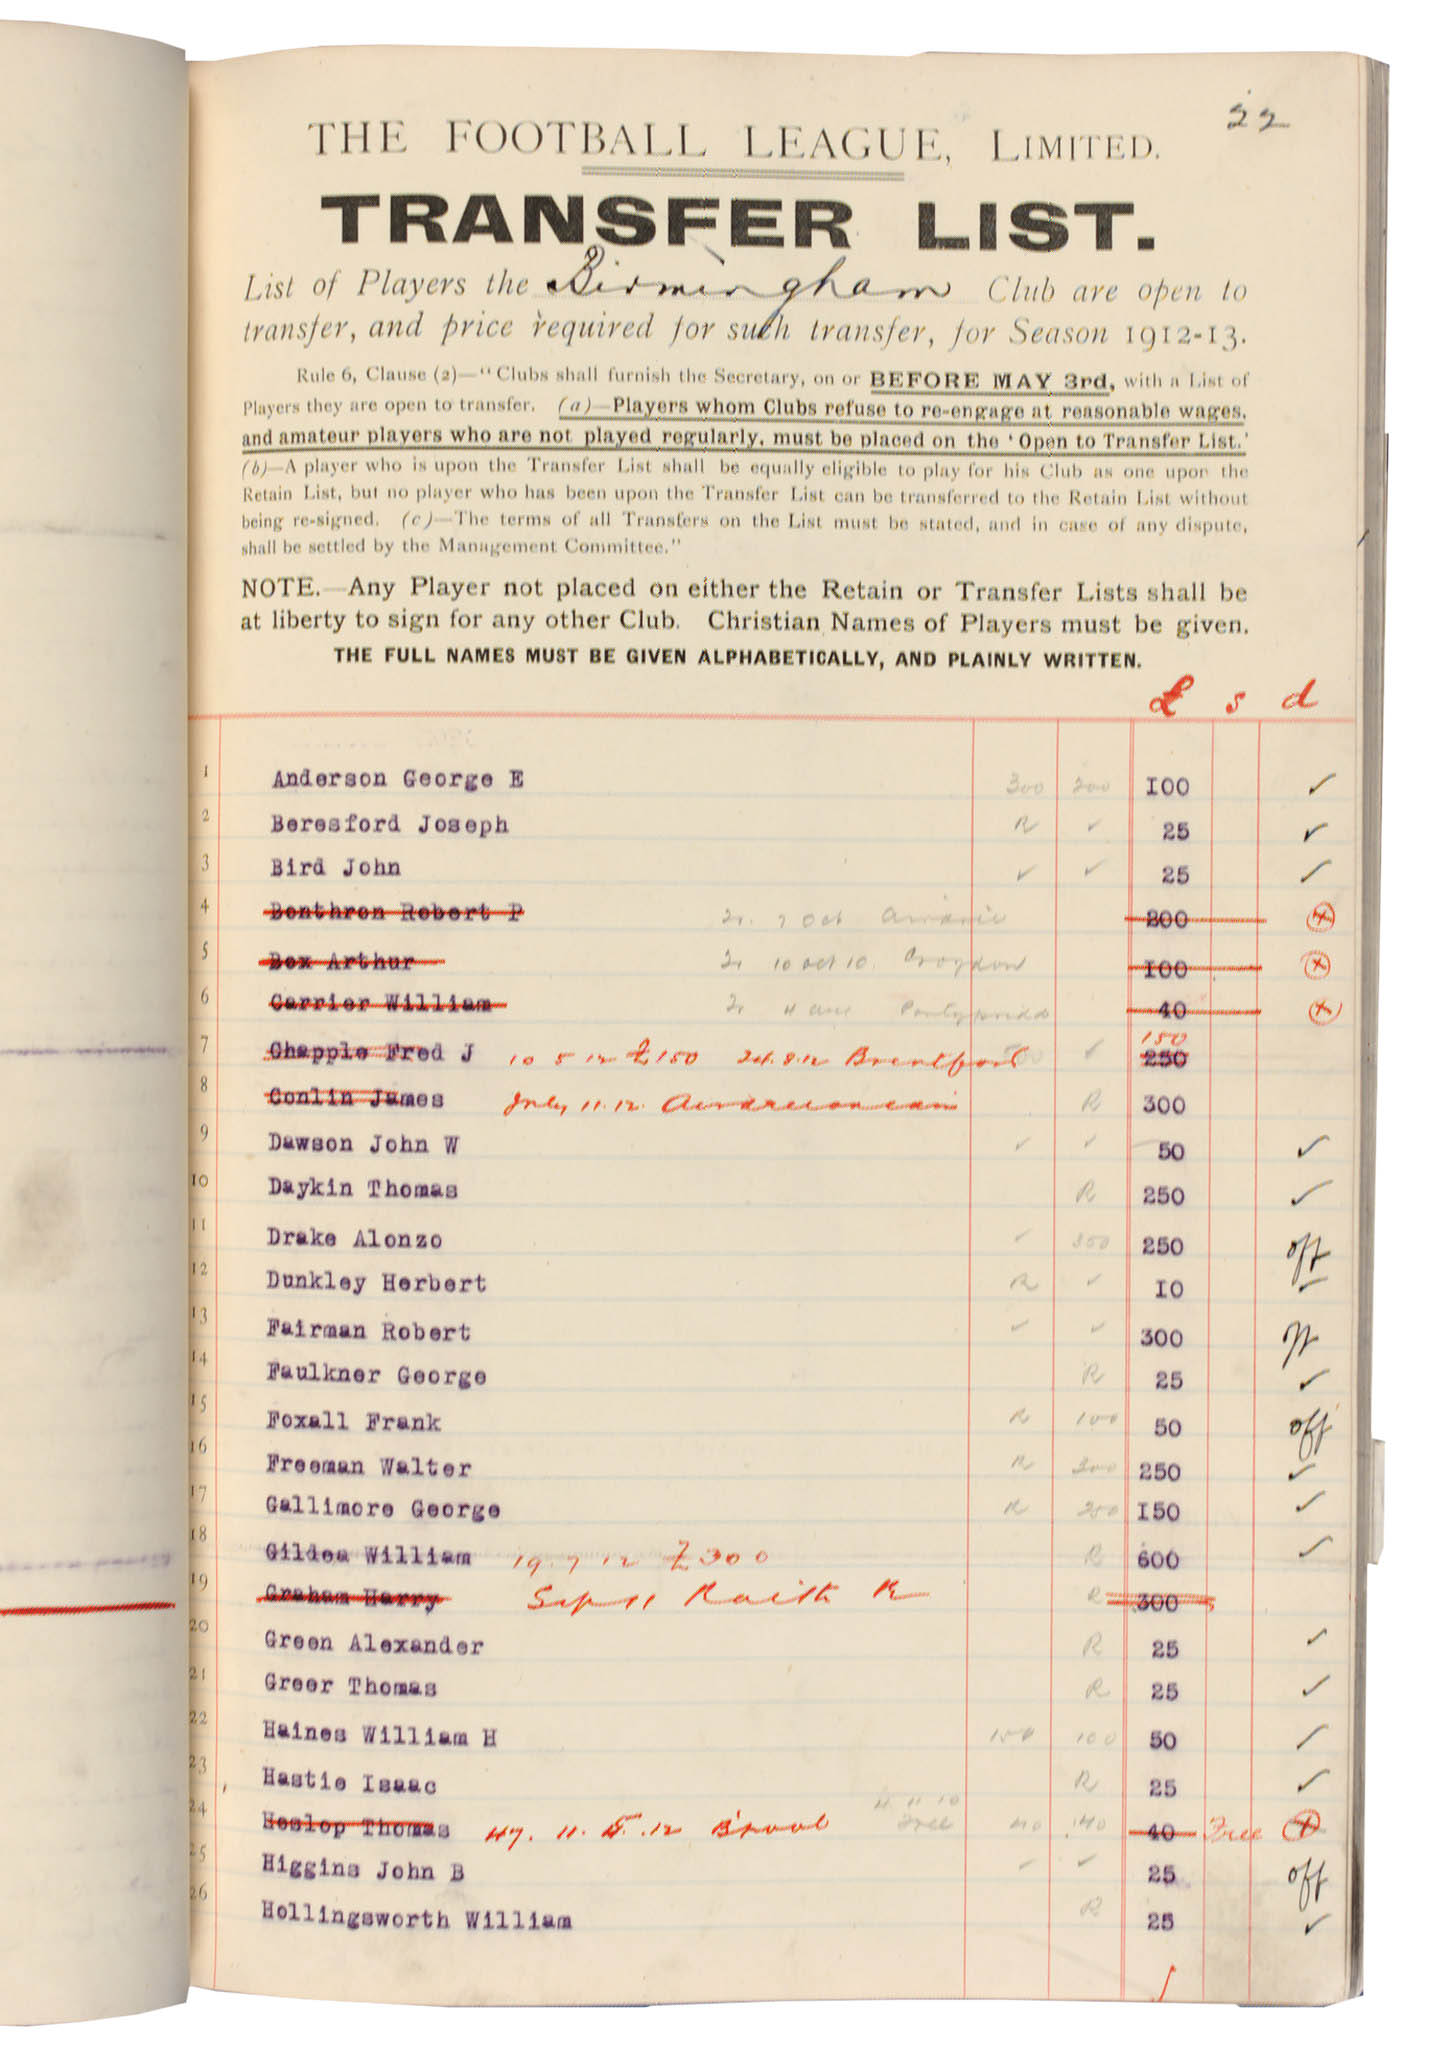 22
THE FOOTBALL LEAGUE, LIMITED.
TRANSFER LIST.
List of Players the Birmingham Club are open to
transfer, and price required for such transfer, for Season 1912-13.
Rule 6, Clause (2)—"Clubs shall furnish the Secretary, on or BEFORE MAY 3rd, with a List of
Players they are open to transfer. (a)—Players whom Clubs refuse to re-engage at reasonable wages,
and amateur players who are not played regularly, must be placed on the 'Open to Transfer List.'
(b)—A player who is upon the Transfer List shall be equally eligible to play for his Club as one upon the
Retain List, but no player who has been upon the Transfer List can be transferred to the Retain List without
being re-signed. (c)—The terms of all Transfers on the List must be stated, and in case of any dispute,
shall be settled by the Management Committee."
NOTE.—Any Player not placed on either the Retain or Transfer Lists shall be
at liberty to sign for any other Club. Christian Names of Players must be given.
THE FULL NAMES MUST BE GIVEN ALPHABETICALLY, AND PLAINLY WRITTEN.
£ s d
1 Anderson George E 300 200 100 ✓
2 Beresford Joseph R ✓ 25 ✓
3 Bird John ✓ ✓ 25 ✓
4 Bonthron Robert P 7 Oct Airdrie 200
5 Box Arthur 10 Oct 10. Croydon 100
6 Carrier William Pontypridd 40
7 Chapple Fred J 10 5 12 £150 24.8.12 Brentford ✓ 150 250
8 Conlin James July 11.12. Airdrieonians R 300
9 Dawson John W ✓ ✓ 50 ✓
10 Daykin Thomas R 250 ✓
11 Drake Alonzo ✓ 350 250 off
12 Dunkley Herbert R ✓ 10 ✓
13 Fairman Robert ✓ ✓ 300 off
14 Faulkner George R 25 ✓
15 Foxall Frank R 100 50 off
16 Freeman Walter R 300 250 ✓
17 Gallimore George R 250 150 ✓
18 Gildea William 19.7 12 £300 R 600 ✓
19 Graham Harry Sep 11 Raith R R 300
20 Green Alexander R 25 ✓
21 Greer Thomas R 25 ✓
22 Haines William H 150 100 50 ✓
23 Hastie Isaac R 25 ✓
24 Heslop Thomas 11.5.12 B'pool 4 11 10 Free 40 40 40 Free
25 Higgins John B ✓ ✓ 25 off
26 Hollingsworth William R 25 ✓